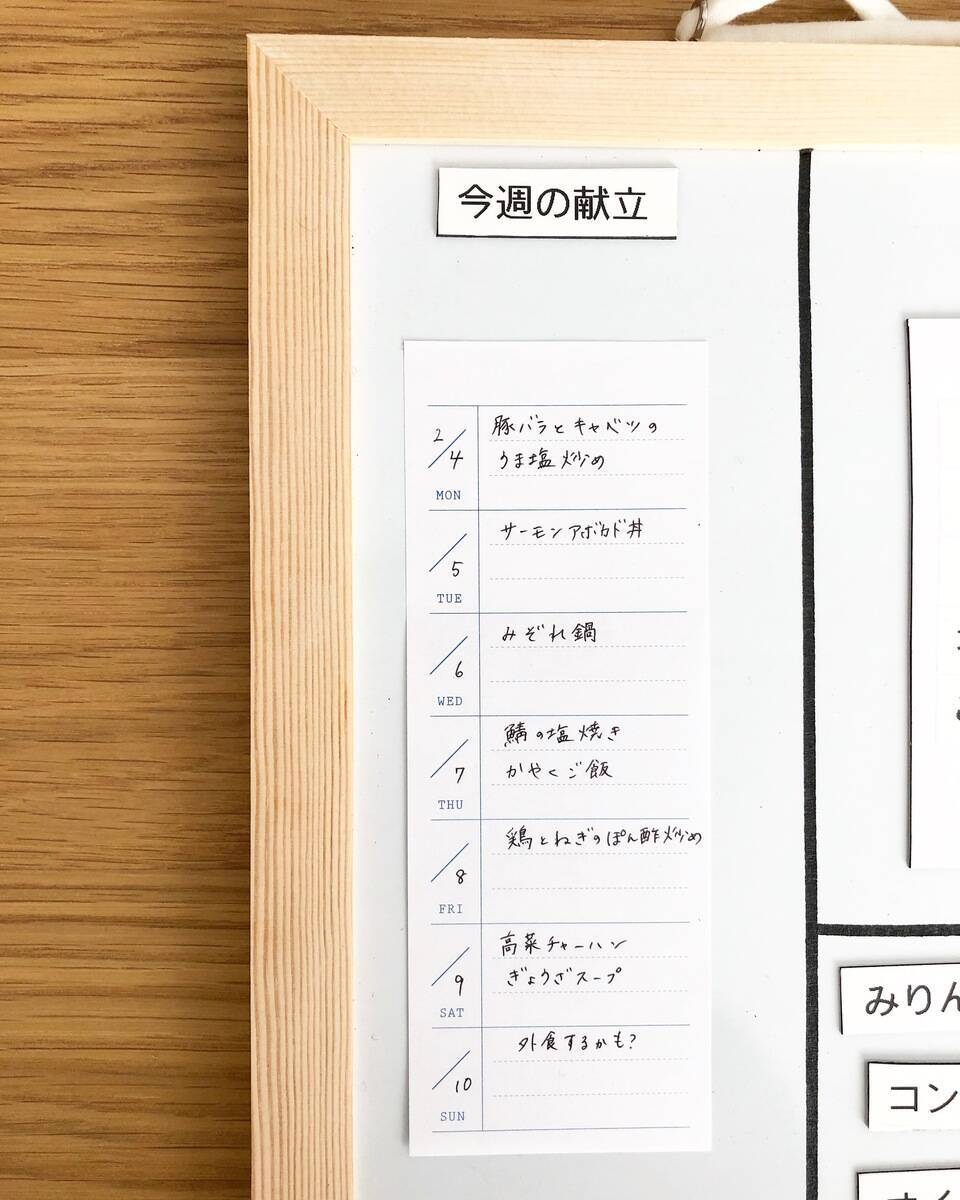 今週の献立
2/4 MON
豚バラとキャベツの
うま塩炒め
/5 TUE
サーモンアボカド丼
/6 WED
みぞれ鍋
/7 THU
鯖の塩焼き
かやくご飯
/8 FRI
鶏とねぎのぽん酢炒め
/9 SAT
高菜チャーハン
ぎょうざスープ
/10 SUN
外食するかも?
みりん
コン